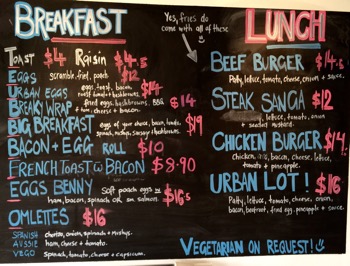 BREAKFAST
TOAST $4 Raisin $4.5
EGGS scramble, fried, poach $12
URBAN EGGS eggs, toast, bacon, roast tomato + hashbrowns $14
BREAKY WRAP fried eggs, hashbrowns, BBQ $14
+ tom, cheese + bacon
BIG BREAKFAST eggs of your choice, bacon, tomatoes, $19
spinach, mushrooms, sausage + hashbrowns
BACON + EGG ROLL $10
FRENCH TOAST W BACON $8.90
EGGS BENNY Soft poach eggs w $16.5
ham, bacon, spinach or sm. salmon.
OMLETTES $16
SPANISH chorizo, onion, spinach + mushys.
AUSSIE ham, cheese + tomato.
VEGO Spinach, tomato, cheese + capsicum.
Yes, fries do
come with all of these
LUNCH
BEEF BURGER $14.5
Patty, lettuce, tomato, cheese, onion + sauce.
STEAK SANGA $12
lettuce, tomato, onion
+ seeded mustard.
CHICKEN BURGER $14.5
chicken, bacon, cheese, lettuce,
tomato + pineapple.
URBAN LOT! $16
Patty, lettuce, tomato, cheese, onion,
bacon, beetroot, fried egg, pineapple + sauce.
VEGETARIAN ON REQUEST!